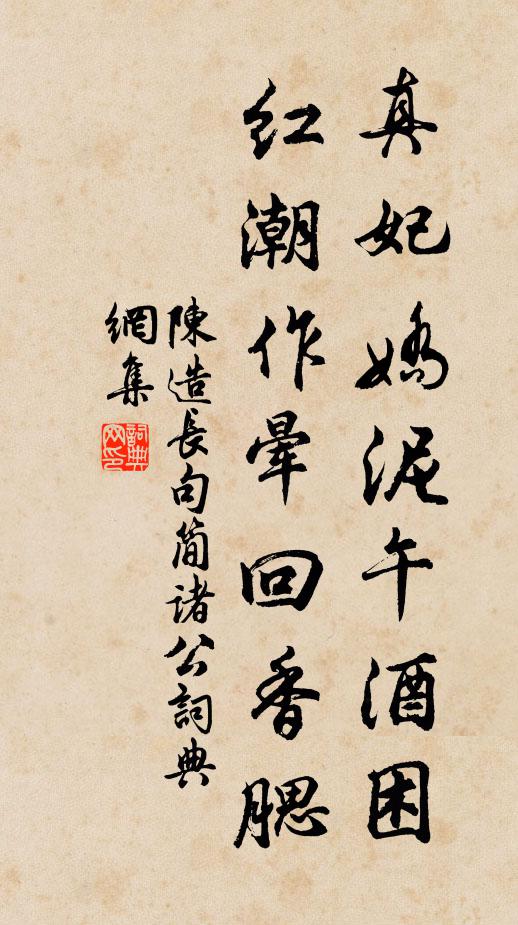 真妃嬌泥午酒困
紅潮作暈回香腮
陳造長句簡諸公詞典
網集
詞典
网印